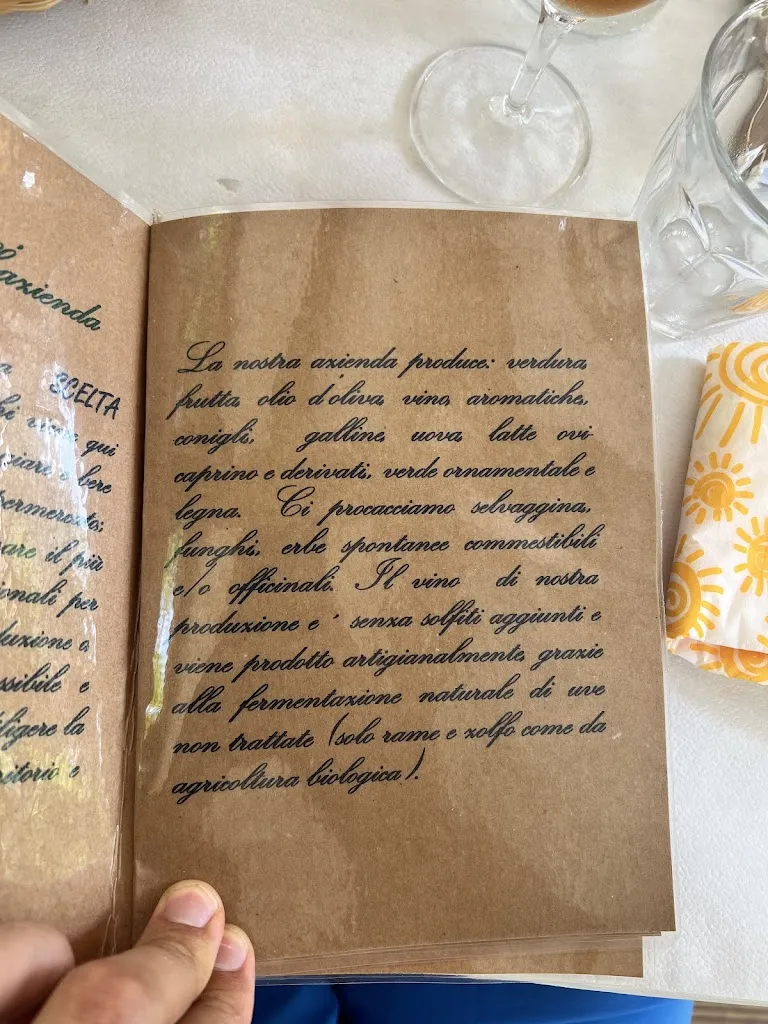 azienda
SCELTA
qui
bere
il più
onali per
duzione a
ssibile e
ligere la
ritorio e
La nostra azienda produce: verdura,
frutta, olio d'oliva, vino, aromatiche,
conigli, galline, uova, latte ovi-
caprino e derivati, verde ornamentale e
legna. Ci procacciamo selvaggina,
funghi, erbe spontanee commestibili
e/o officinali. Il vino di nostra
produzione e' senza solfiti aggiunti e
viene prodotto artigianalmente, grazie
alla fermentazione naturale di uve
non trattate (solo rame e zolfo come da
agricoltura biologica).